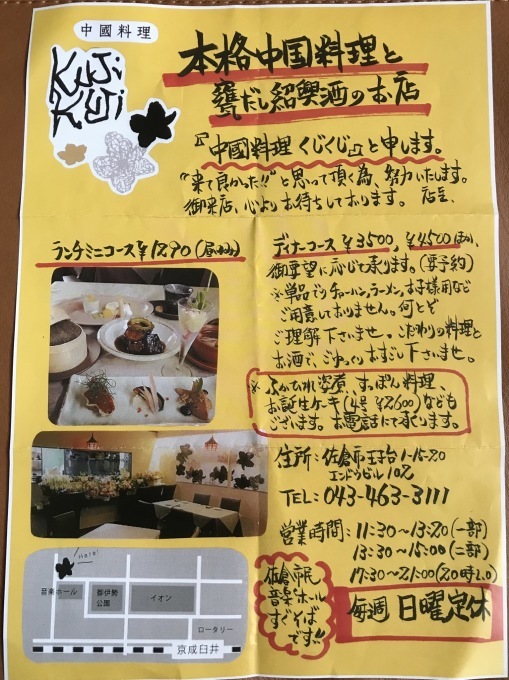 中國料理
KUJi
KUJi
本格中国料理と
甕だし紹興酒のお店
『中國料理 くじくじ』と申します。
"来て良かった!!"と思って頂く為、努力いたします。
御来店、心よりお待ちしております。 店主
ランチミニコース¥1290(昼のみ)
ディナーコース ¥3500, ¥4500ほか、
御要望に応じて承ります。(要予約)
※単品でのチャーハン、ラーメン、お子様用など
ご用意しておりません。何とぞ
ご理解下さいませ。こだわりの料理と
お酒で、ごゆっくりおすごし下さいませ。
※ふかひれ姿煮、すっぽん料理、
お誕生ケーキ(4号 ¥2600)なども
ございます。お電話にて承ります。
住所:佐倉市王子台1-15-20
エンドウビル102
TEL:043-463-3111
営業時間:11:30〜13:20(一部)
13:30〜15:00(二部)
17:30〜21:00(20時L.O)
毎週 日曜定休
佐倉市民
音楽ホール
すぐそば
です!!
Here!
音楽ホール
御伊勢
公園
イオン
ロータリー
京成臼井